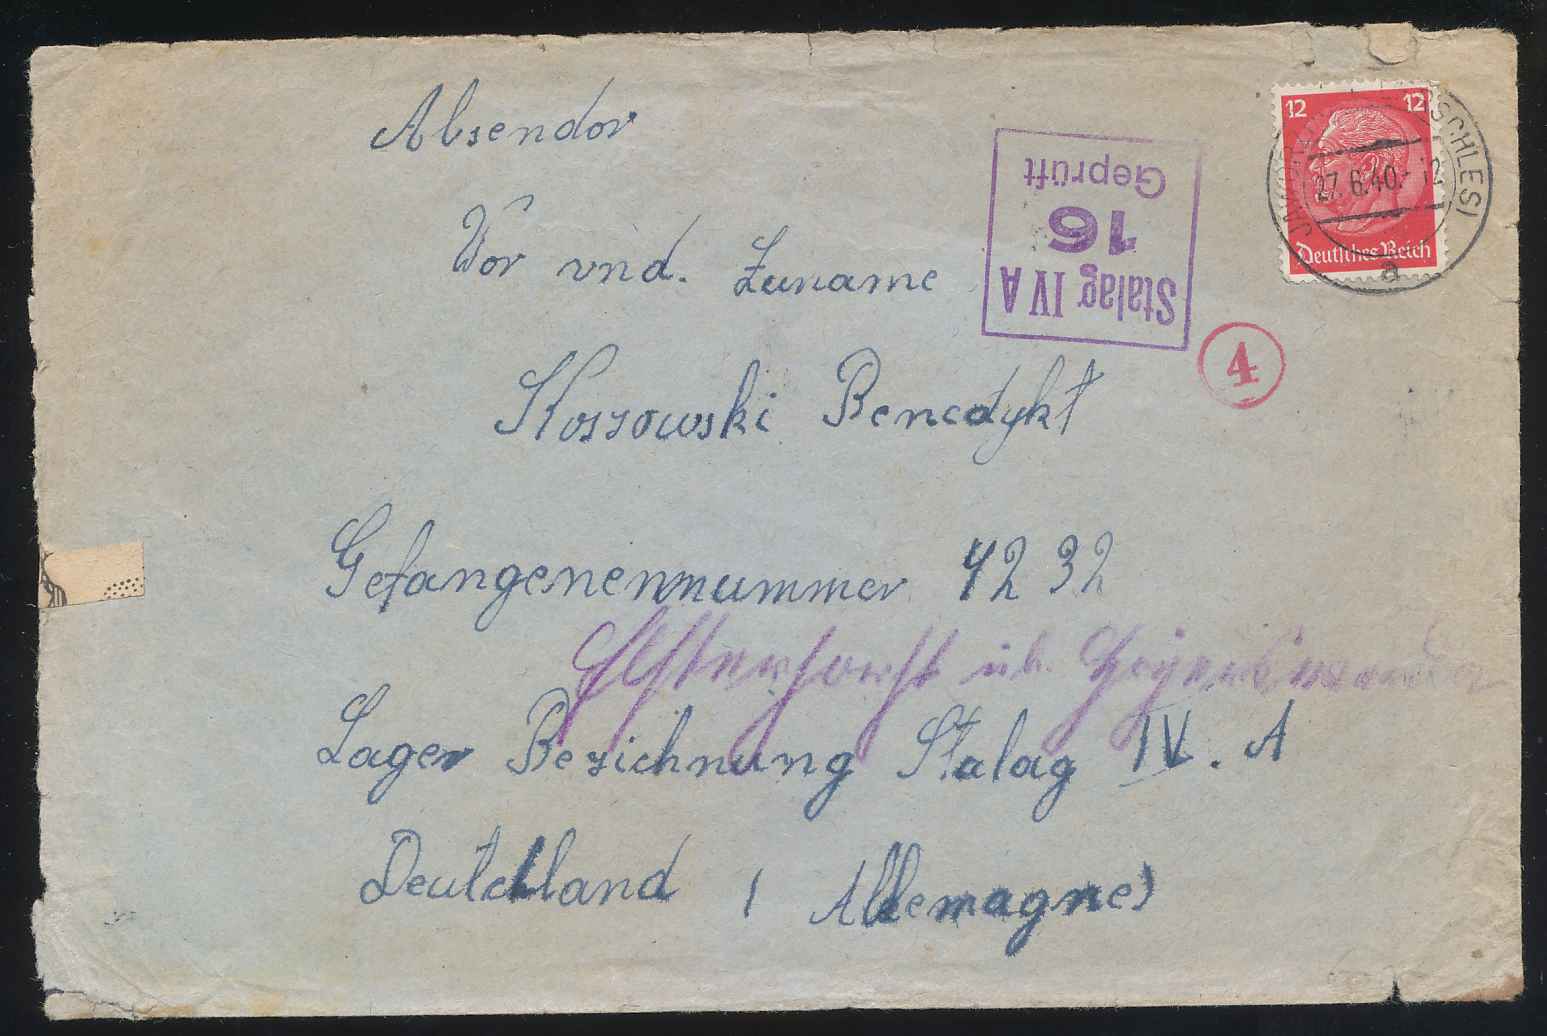 Absendor
12 12
SCHLES)
27.6.40.- 12
Deutsches Reich
a
Geprüft
16
Stalag IV A
Vor vnd. Zuname
4
Koszowski Benedykt
Gefangenennummer 4232
Elsterhorst üb. Hoyerswerda
Lager Bezichnung Stalag IV. A
Deutchland (Allemagne)